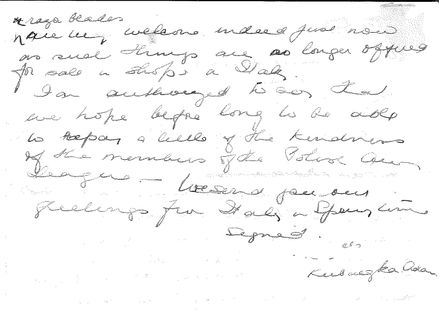 * raza blades
are very welcome indeed just now
as such things are no longer offered
for sale in shops in Italy.
I am authorized to say that
we hope before long to be able
to repay a little of the kindness
of the members of the Polish
League. — We send you our
greetings from Italy in Spring time
signed.